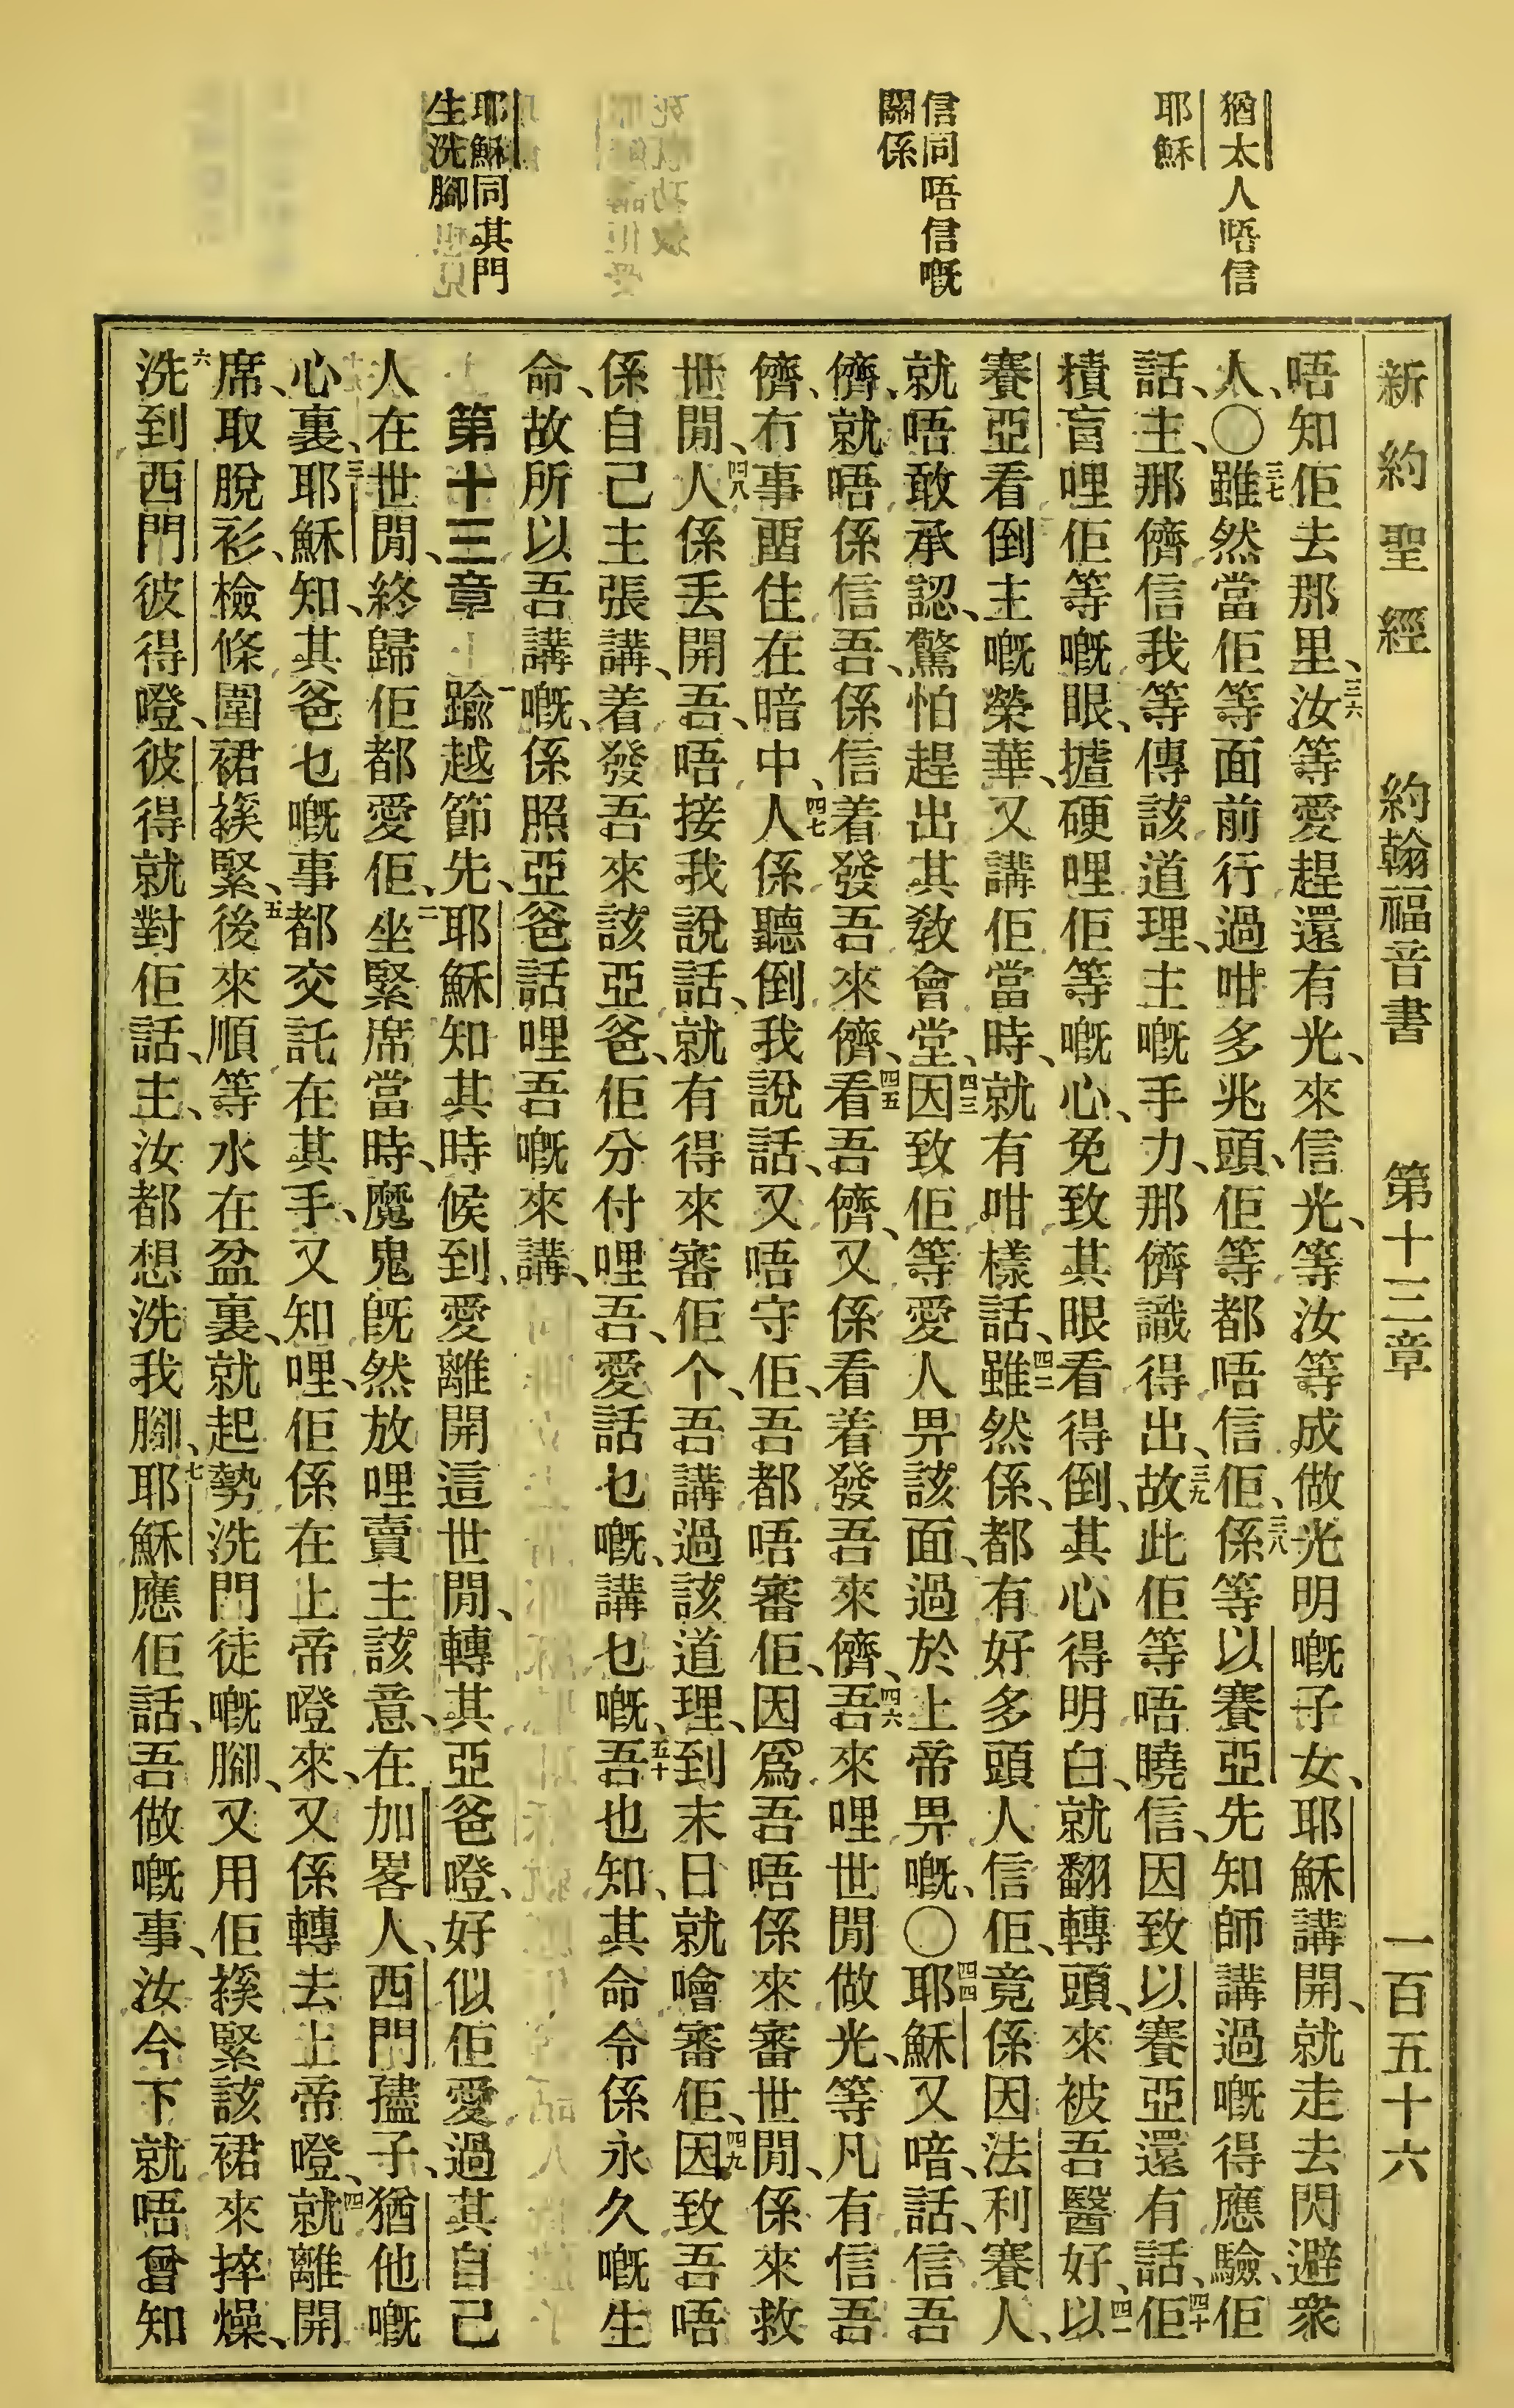 猶太人唔信
耶穌
信同唔信嘅
關係
耶穌同其門
生洗腳
新約聖經 約翰福音書 第十三章 一百五十六
唔知佢去那里、三六汝等愛趕還有光、來信光、等汝等成做光明嘅子女、耶穌講開、就走去閃避衆
人、〇三七雖然當佢等面前行過咁多兆頭、佢等都唔信佢、三八係等以賽亞先知師講過嘅得應驗、佢
話、主、那儕信我等傳該道理、主嘅手力、那儕識得出、三九故此佢等唔曉信、因致以賽亞還有話、四十佢
積盲哩佢等嘅眼、揸硬哩佢等嘅心、免致其眼看得倒、其心得明白、就翻轉頭、來被吾醫好、四一以
賽亞看倒主嘅榮華、又講佢當時、就有咁樣話、四二雖然係、都有好多頭人信佢、竟係因法利賽人、
就唔敢承認、驚怕趕出其教會堂、四三因致佢等愛人畀該面、過於上帝畀嘅、〇四四耶穌又喑話、信吾
儕、就唔係信吾、係信着發吾來儕、四五看吾儕、又係看着發吾來儕、四六吾來哩世間做光、等凡有信吾
儕、冇事𠱃住在暗中、四七人係聽倒我說話、又唔守佢、吾都唔審佢、因爲吾唔係來審世間、係來救
世間、四八人係丟開吾、唔接我說話、就有得來審佢个、吾講過該道理、到末日就噲審佢、四九因致吾唔
係自己主張講、着發吾來該亞爸、佢分付哩吾、愛話乜嘅、講乜嘅、五十吾也知、其命令係永久嘅生
命、故所以吾講嘅、係照亞爸話哩吾嘅來講、
第十三章 一踰越節先、耶穌知其時候到、愛離開這世間、轉其亞爸嶝、好似佢愛過其自己
人在世間、終歸佢都愛佢、二坐緊席當時、魔鬼旣然放哩賣主該意、在加畧人、西門孻子、猶他嘅
心裏、三耶穌知、其爸乜嘅事都交託在其手、又知哩、佢係在上帝嶝來、又係轉去上帝嶝、四就離開
席、取脫衫、檢條圍裙𢲡緊、五後來順等水在盆裏、就起勢洗門徒嘅腳、又用佢𢲡緊該裙來捽燥、
六洗到西門彼得嶝、彼得就對佢話、主、汝都想洗我腳、七耶穌應佢話、吾做嘅事、汝今下就唔曾知